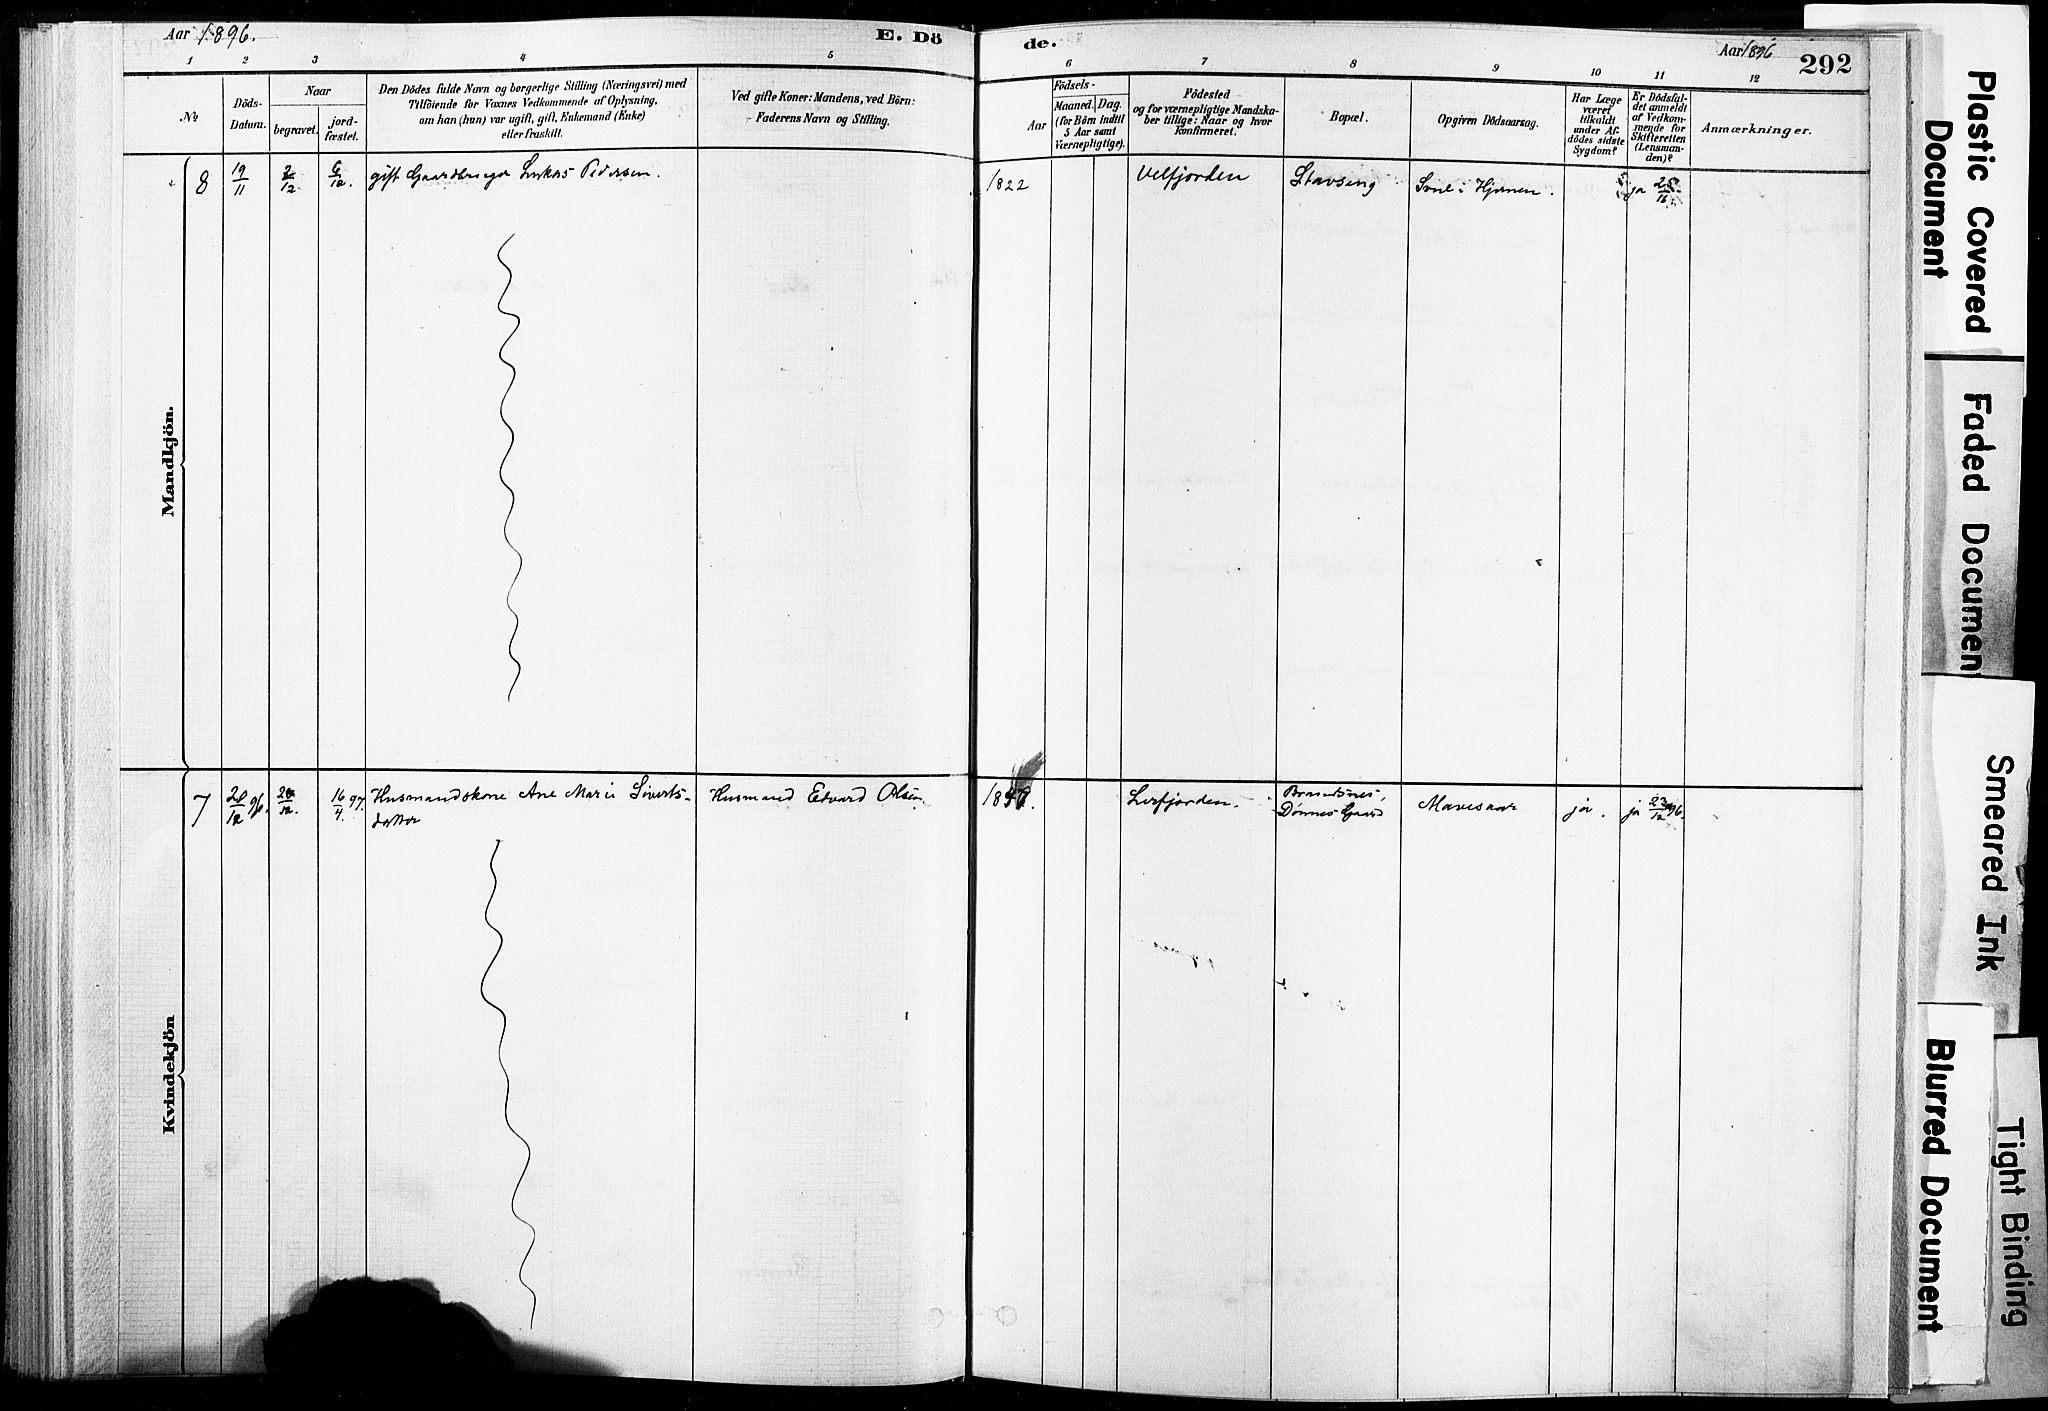 Aar 1896.
E. Dö
de.
Aar 1896
292
1
2
3
4
5
6
7
8
9
10
11
12
No
Döds-
Datum.
Naar
begravet.
jord-
fæstet.
Den Dödes fulde Navn og borgerlige Stilling (Næringsvei) med
Tilföiende for Voxnes Vedkommende af Oplysning,
om han (hun) var ugift, gift, Enkemand (Enke)
eller fraskilt.
Ved gifte Koner: Mandens, ved Börn:
Faderens Navn og Stilling.
Födsels-
Aar
Maaned.
Dag.
(for Börn indtil
5 Aar samt
Værnepligtige).
Födested
og for værnepligtige Mandska-
ber tillige: Naar og hvor
konfirmeret.
Bopæl.
Opgiven Dödsaarsag.
Har Læge
været
tilkaldt
under Af-
dödes sidste
Sygdom?
Er Dödsfal-
det anmeldt
af Vedkom-
mende for
Skifteretten
(Lensman-
den)?
Anmærkninger.
Mandkjön.
8
19/11
2/12
6/12.
gift Gaardbruger Lukas Pedersen.
1822
Velfjorden
Stavseng
i Hjernen.
ja
Kvindekjön
7
20/12 96.
16/4 97.
Husmandskone Ane Marie Siverts-
datter
Husmand Edvard Olsen
Leirfjorden.
Brandsnes,
Dønnes Gaard
Mavesaar
ja.
ja 23/12 96.
Plastic Covered
Document
Faded Document
Smeared Ink
Blurred Document
Tight Binding